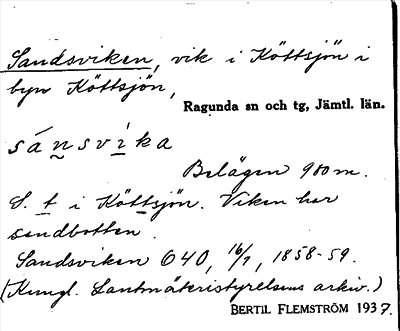 Sandsviken, vik i Köttsjön i
byn Köttsjön,
Ragunda sn och tg, Jämtl. län.
sánsvìka
Belägen 900 m.
S. t i Köttsjön. Viken har
sandbotten.
Sandsviken O40, 16/7, 1858-59.
(Kungl. Lantmäteristyrelsens arkiv.)
BERTIL FLEMSTRÖM 1937.